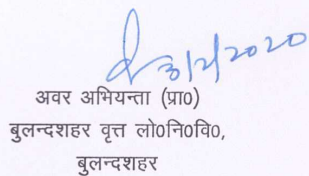 3/2/2020
अवर अभियन्ता (प्रा०)
बुलन्दशहर वृत्त लो०नि०वि०,
बुलन्दशहर